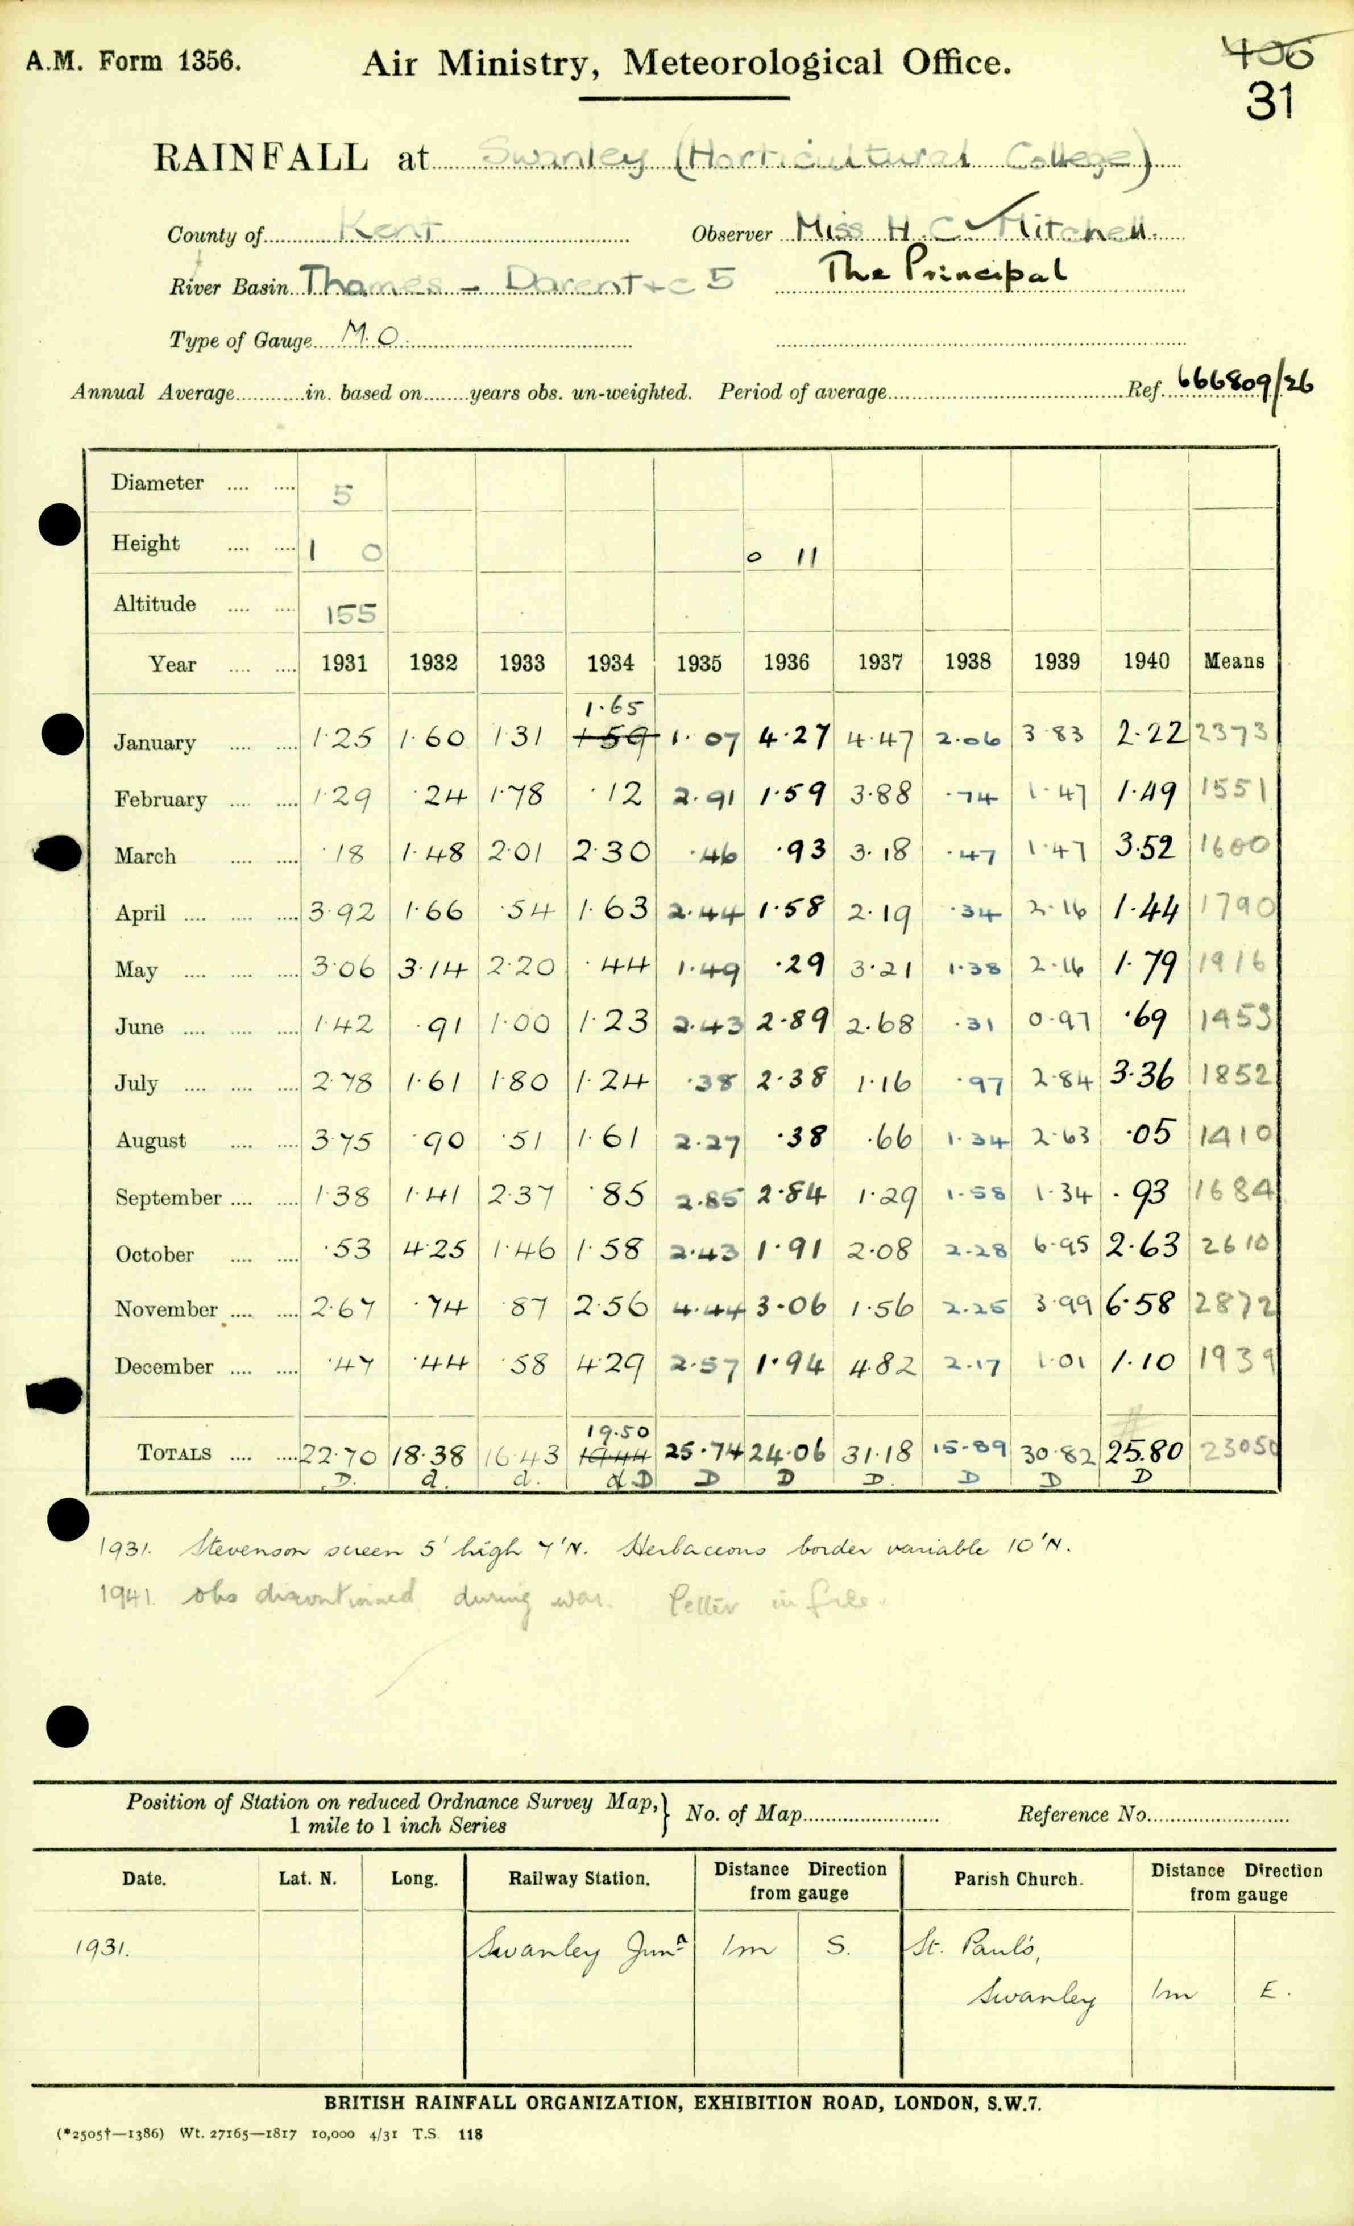 A.M. Form 1356. Air Ministry, Meteorological Office. 406
31
RAINFALL at Swanley (Horticultural College)
County of Kent Observer Miss H. C. Mitchell.
River Basin Thames - Darent +c 5 The Principal
Type of Gauge M.O.
Annual Average in. based on years obs. un-weighted. Period of average Ref. 666809/26
Diameter 5
Height 1 0 0 11
Altitude 155
Year 1931 1932 1933 1934 1935 1936 1937 1938 1939 1940 Means
1.65
January 1.25 1.60 1.31 1.59 1.07 4.27 4.47 2.06 3.83 2.22 2373
February 1.29 .24 1.78 .12 2.91 1.59 3.88 .74 1.47 1.49 1551
March .18 1.48 2.01 2.30 .46 .93 3.18 .47 1.47 3.52 1600
April 3.92 1.66 .54 1.63 2.44 1.58 2.19 .34 2.16 1.44 1790
May 3.06 3.14 2.20 .44 1.49 .29 3.21 1.38 2.16 1.79 1916
June 1.42 .91 1.00 1.23 2.43 2.89 2.68 .31 0.97 .69 1453
July 2.78 1.61 1.80 1.24 .38 2.38 1.16 .97 2.84 3.36 1852
August 3.75 .90 .51 1.61 2.27 .38 .66 1.34 2.63 .05 1410
September 1.38 1.41 2.37 .85 2.85 2.84 1.29 1.58 1.34 .93 1684
October .53 4.25 1.46 1.58 2.43 1.91 2.08 2.28 6.95 2.63 2610
November 2.67 .74 .87 2.56 4.44 3.06 1.56 2.25 3.99 6.58 2872
December .47 .44 .58 4.29 2.57 1.94 4.82 2.17 1.01 1.10 1939
19.50 #
TOTALS 22.70 18.38 16.43 19.44 25.74 24.06 31.18 15.89 30.82 25.80 23050
D. d. d. d D D D D. D D D
1931. Stevenson screen 5' high 7' N. Herbaceous border variable 10' N.
1941. obs discontinued during war. Letter in file.
Position of Station on reduced Ordnance Survey Map, } No. of Map Reference No.
1 mile to 1 inch Series
Date. Lat. N. Long. Railway Station. Distance Direction from gauge Parish Church. Distance Direction from gauge
1931. Swanley Junn 1m S. St. Paul's,
Swanley 1m E.
BRITISH RAINFALL ORGANIZATION, EXHIBITION ROAD, LONDON, S.W.7.
(*2505†—1386) Wt. 27165—1817 10,000 4/31 T.S. 118